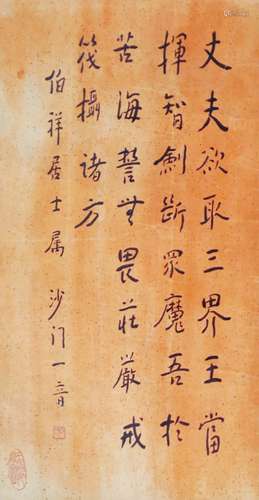 丈夫欲取三界王當
揮智劍斷眾魔吾於
苦海誓無畏莊嚴戒
筏攝諸方
伯祥居士屬 沙门一音